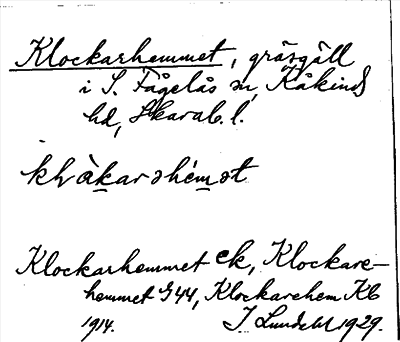 Klockarhemmet, gräsgäll
i S. Fågelås sn, Kåkinds
hd, Skarab. l.
klɷ̀karəhem̀ət
Klockarhemmet ek, Klockare-
hemmet G44, Klockarehem Kb
1914. J. Lundahl 1929.